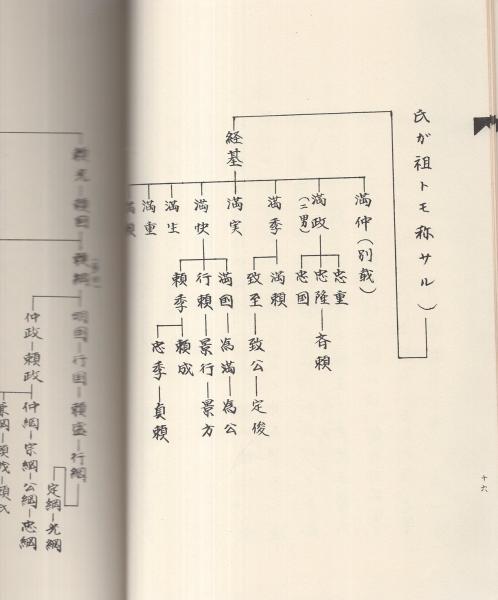 氏が祖トモ称サル)
経基
満仲(別載)
満政
(二男)
満季
満実
満快
満生
満重
忠重
忠隆―斉頼
忠国
満頼
致至―致公―定俊
満国―為満―為公
行頼―景行―景方
頼季
頼成
忠季―貞頼
十六
頼光―頼国―頼綱
明国―行国―頼盛―行綱
定綱―光綱
仲政―頼政
仲綱―宗綱―公綱―忠綱